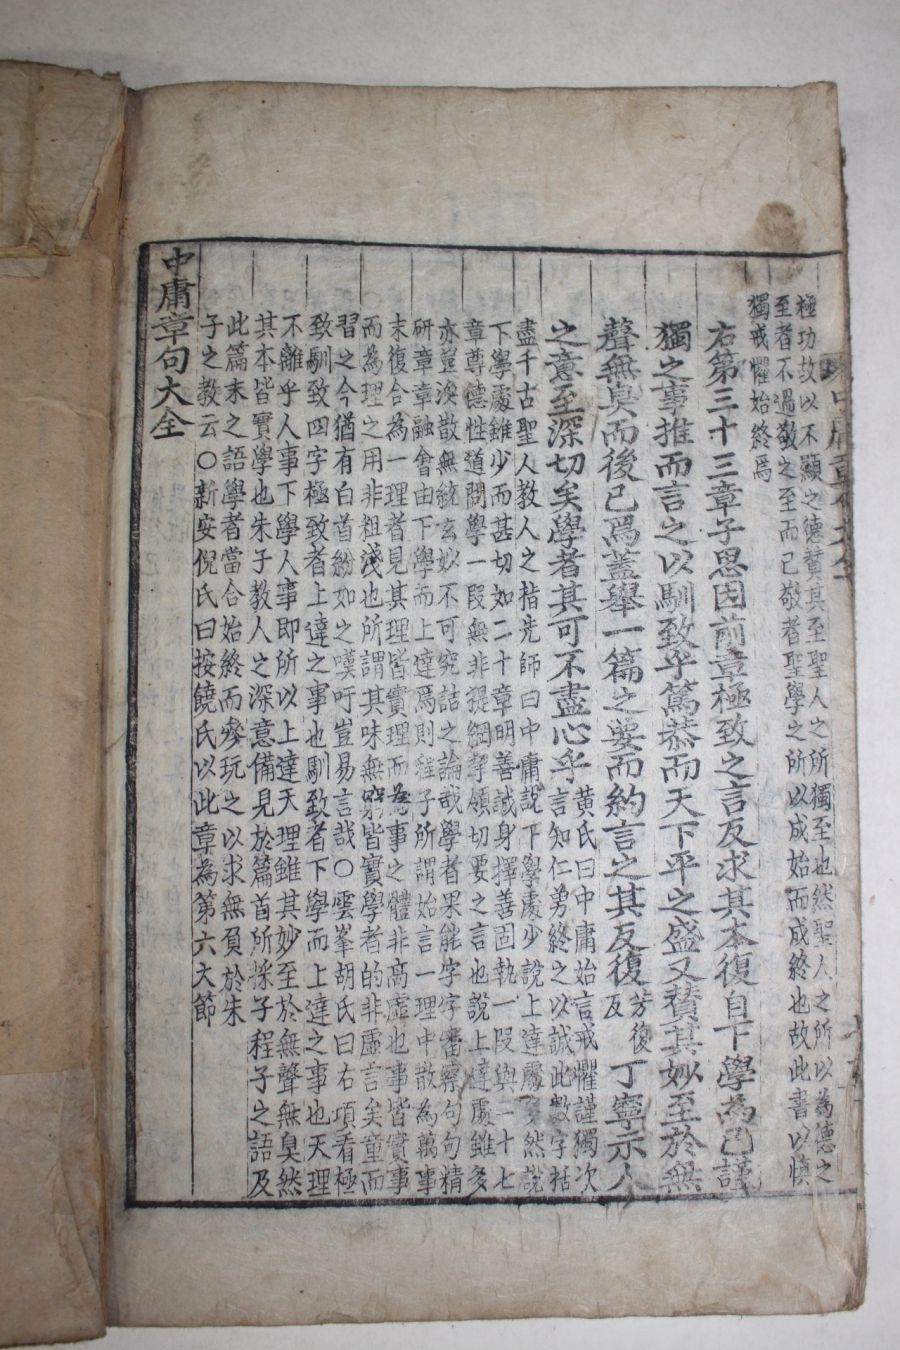 極功故以不顯之德贊其至聖人之所獨至也然聖人之所以為德之
至者不過敬之至而已敬者聖學之所以成始而成終也故此書以慎
獨戒懼始終焉
右第三十三章子思因前章極致之言反求其本復自下學為己謹
獨之事推而言之以馴致乎篤恭而天下平之盛又贊其妙至於無
聲無臭而後已焉蓋舉一篇之要而約言之其反復芳復反丁寧示人
之意至深切矣學者其可不盡心乎
黃氏曰中庸始言戒懼謹獨次
言知仁勇終之以誠此數字括
盡千古聖人教人之指先師曰中庸說下學處少說上達處多然說
下學處雖少而甚切如二十章明善誠身擇善固執一段與二十七
章尊德性道問學一段無非提綱挈領切要之言也說上達處雖多
亦豈渙散無統玄妙不可究詰之論哉學者果能字字審察句句精
研章章融會由下學而上達焉則程子所謂始言一理中散為萬事
末復合為一理者見其理皆實理而為事之體非高虛也事皆實事
而為理之用非粗淺也所謂其味無窮皆實學者的非虛言矣童而
習之今猶有白首紛如之嘆吁豈易言哉〇雲峯胡氏曰右項看極
致馴致四字極致者上達之事也馴致者下學而上達之事也天理
不離乎人事下學人事即所以上達天理雖其妙至於無聲無臭然
其本皆實學也朱子教人之深意備見於篇首所採子程子之語及
此篇末之語學者當合始終而參玩之以求無負於朱
子之教云〇新安倪氏曰按饒氏以此章為第六大節
中庸章句大全